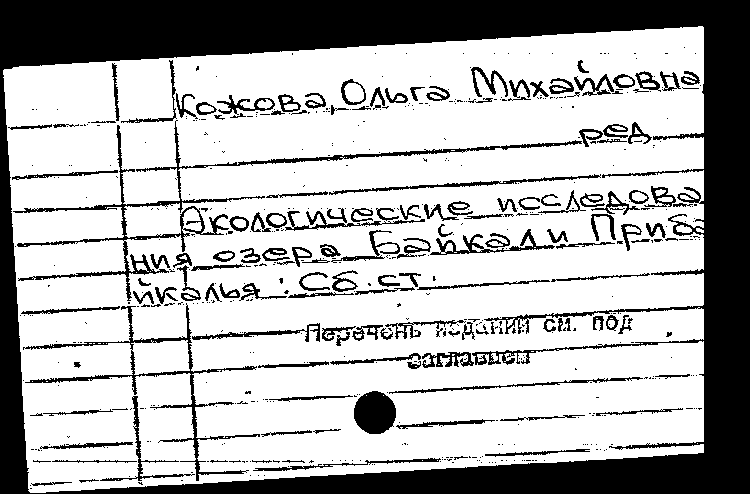 Кожова, Ольга Михайловна
ред
Экологические исследова
ния озера Байкал и Приба
йкалья : Сб. ст.
Перечень изданий см. под
заглавием